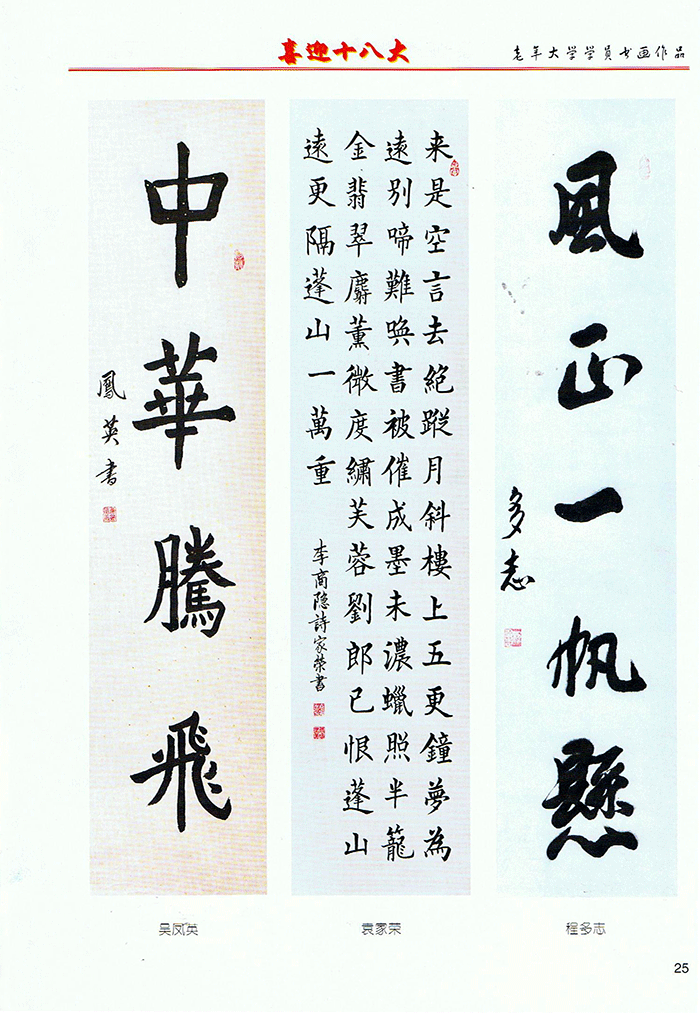 喜迎十八大
老年大学学员书画作品
風正一帆懸
多志
来是空言去絕蹤月斜樓上五更鐘夢為
遠別啼難喚書被催成墨未濃蠟照半籠
金翡翠麝薰微度繡芙蓉劉郎已恨蓬山
遠更隔蓬山一萬重
李商隐詩家荣書
中華騰飛
鳳英书
吴凤英
袁家荣
程多志
25